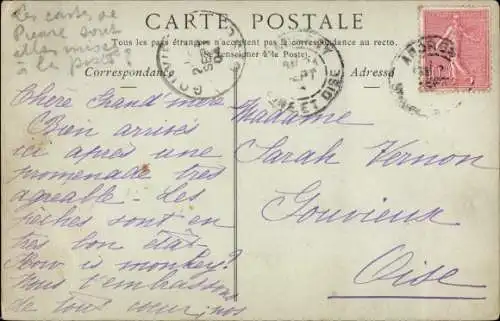 Les cartes de
Pierre sont
elles mises à
la poste?
CARTE POSTALE
Tous les pays étrangers n'acceptent pas la correspondance au recto.
se renseigner à la poste.)
Correspondance
Adresse
GOUVIEUX
SEINE ET OISE
Chère Grand'mère
Bien arrivés
ici après une
promenade très
agréable. Les
pêches sont en
très bon état
How is monkey?
Nous t'embrassons
de tout cœur, nos
Madame
Sarah Vernon
Gouvieux
Oise